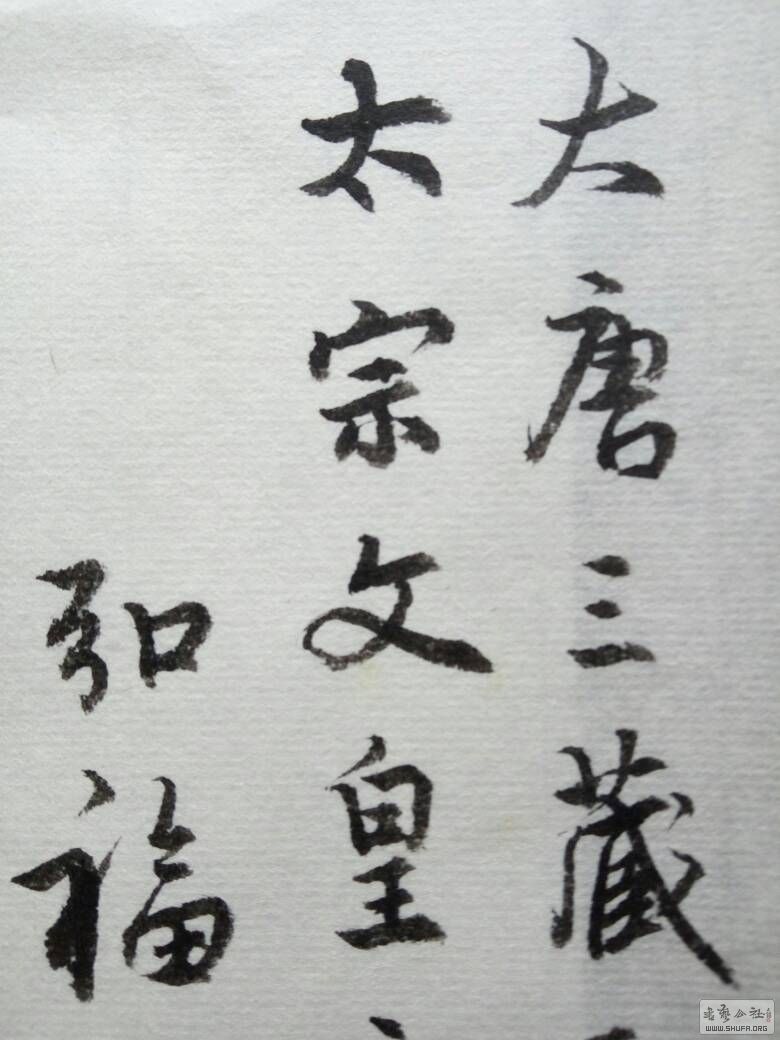 大唐三藏
太宗文皇
弘福
WWW.SHUFA.ORG